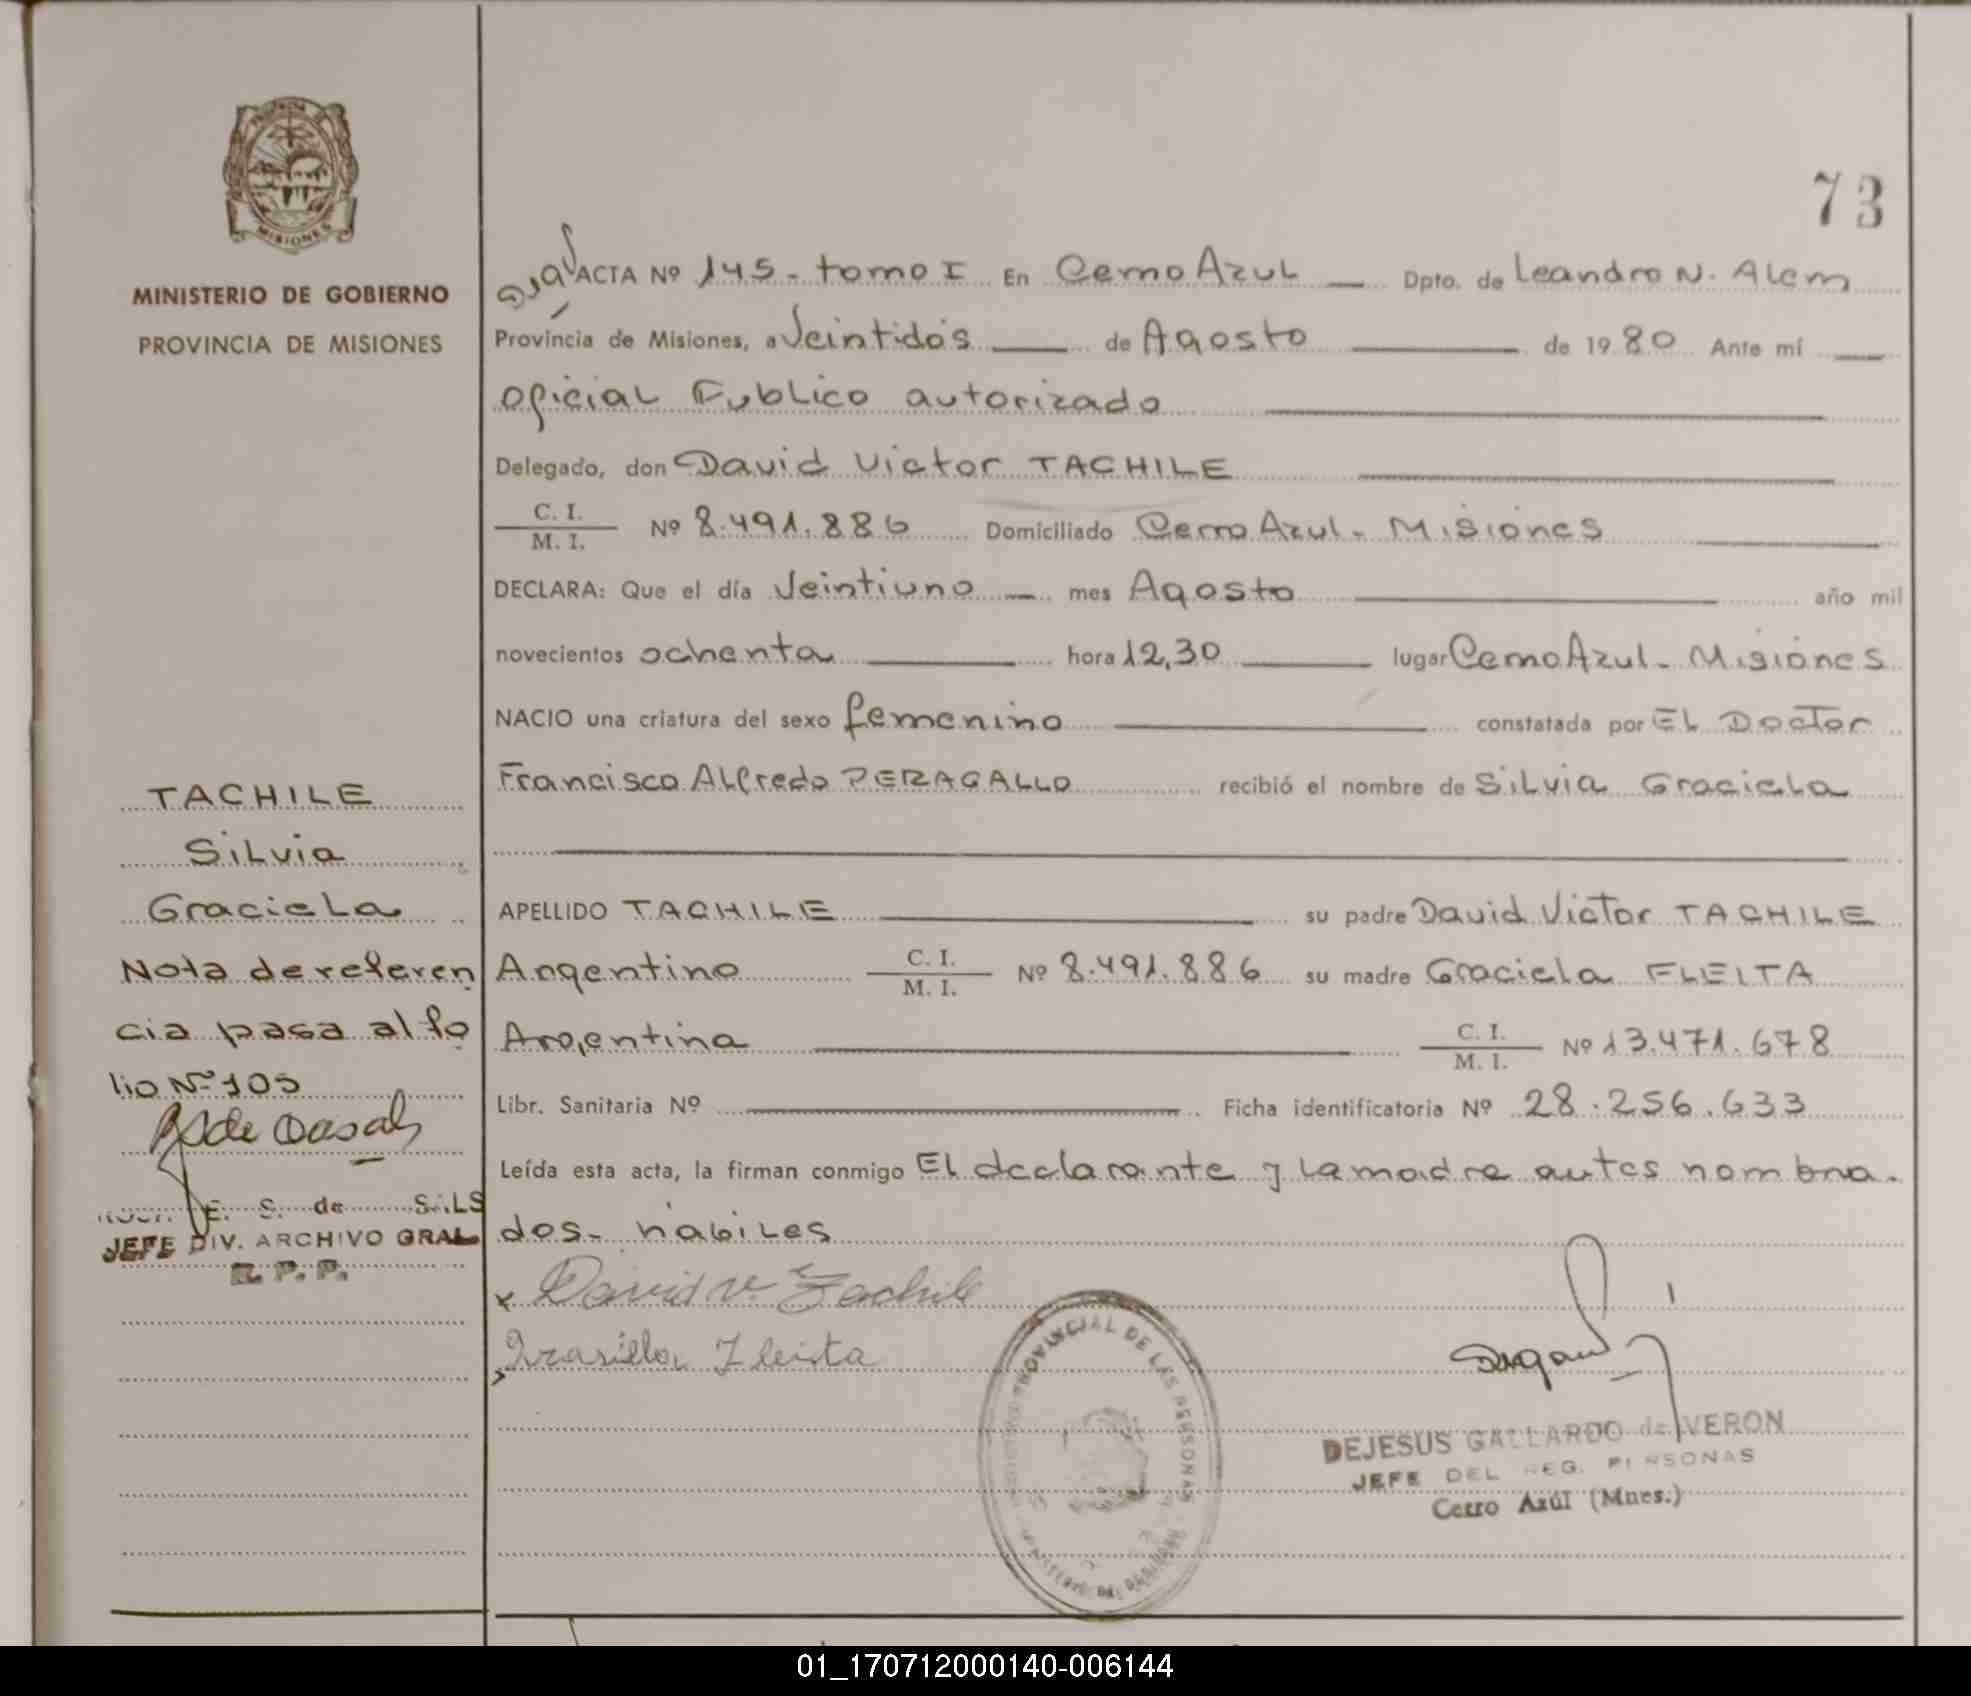 73
MINISTERIO DE GOBIERNO
PROVINCIA DE MISIONES
MISIONES
ACTA Nº 145 - tomo I En Cerro Azul Dpto. de Leandro N. Alem
Provincia de Misiones, a Veintidós de Agosto de 1980 Ante mí
oficial Publico autorizado
Delegado, don David Victor TACHILE
C. I.
M. I. Nº 8.491.886 Domiciliado Cerro Azul - Misiones
DECLARA: Que el día Veintiuno mes Agosto año mil
novecientos ochenta hora 12,30 lugar Cerro Azul - Misiones
NACIO una criatura del sexo femenino constatada por El Doctor
Francisco Alfredo PERAGALLO recibió el nombre de Silvia Graciela
APELLIDO TACHILE su padre David Victor TACHILE
Argentino C. I.
M. I. Nº 8.491.886 su madre Graciela FLEITA
Argentina C. I.
M. I. Nº 13.471.678
Libr. Sanitaria Nº Ficha identificatoria Nº 28.256.633
Leída esta acta, la firman conmigo El declarante y la madre antes nombra-
dos - habiles
David V. Tachile
Fleita
TACHILE
Silvia
Graciela
Nota de referen
cia pasa al fo
lio Nº 105
E. S. de
JEFE DIV. ARCHIVO GRAL
R. P. P.
PROVINCIAL DE LAS PERSONAS
DEJESUS GALLARDO de VERON
JEFE DEL REG. PERSONAS
Cerro Azúl (Mnes.)
01_170712000140-006144